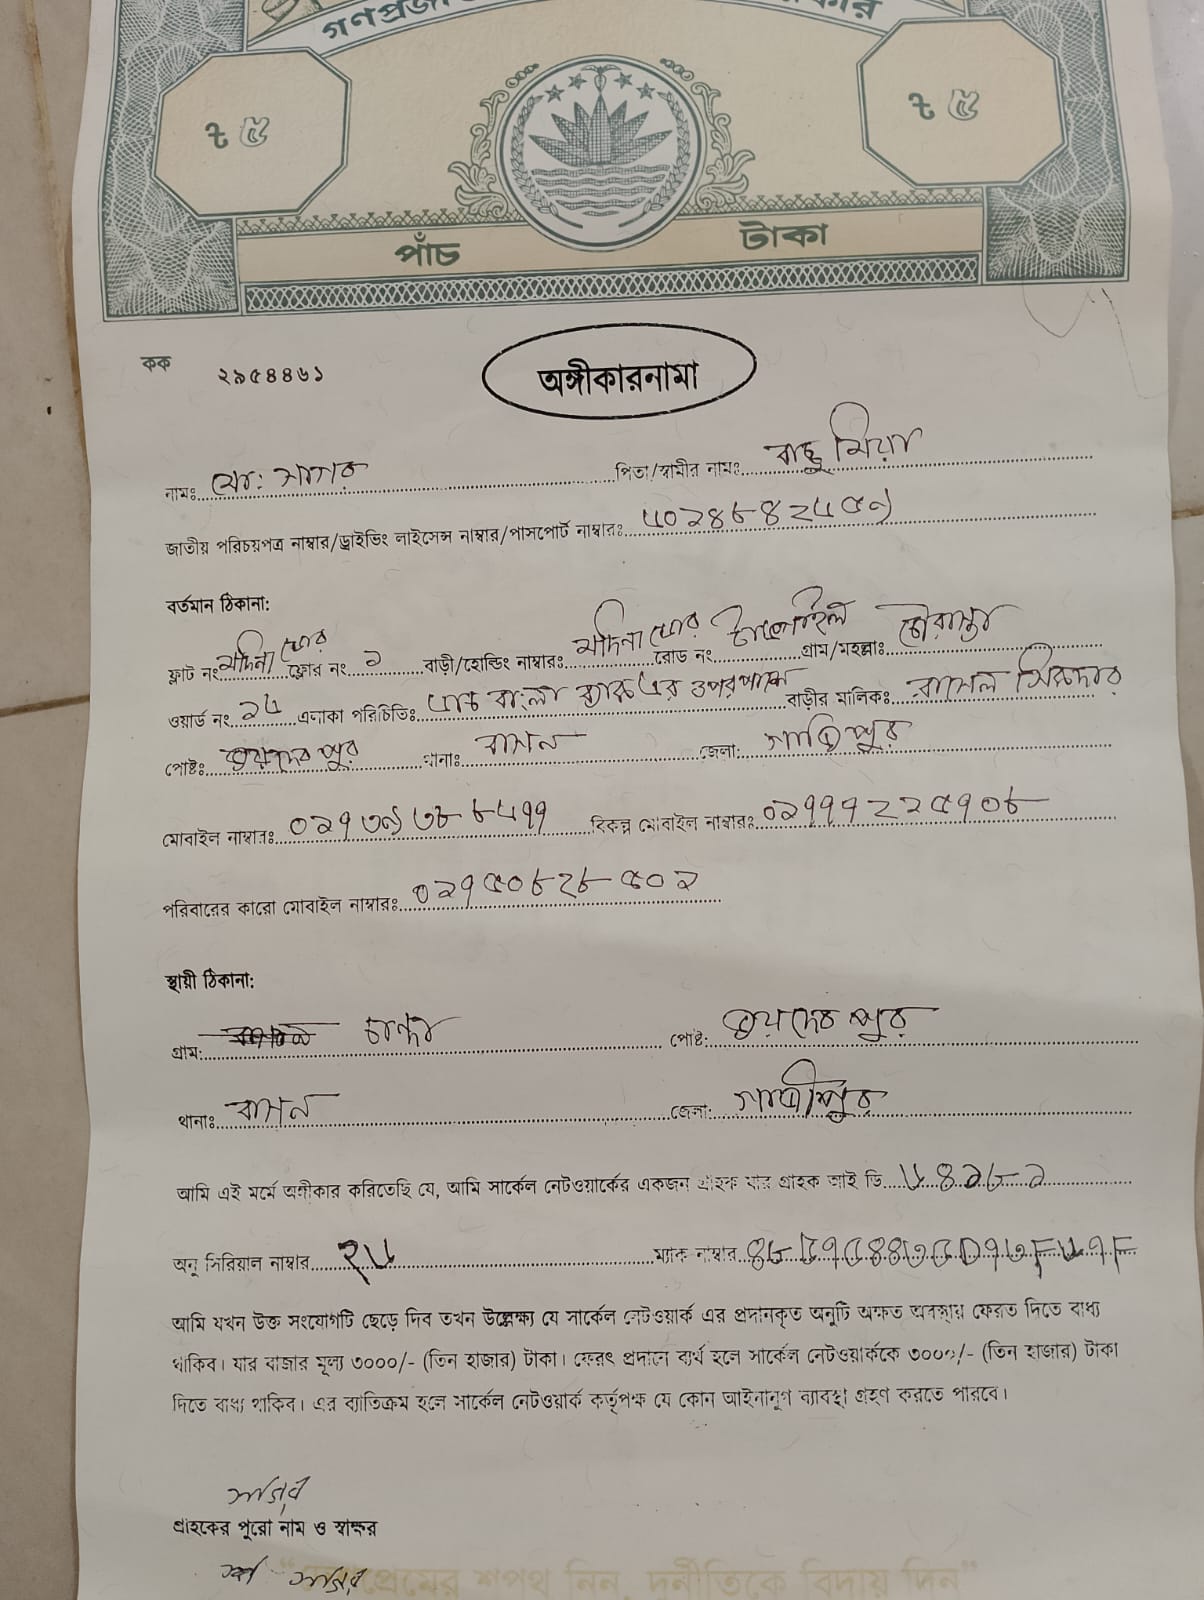 গণপ্রজা
৳ ৫
৳ ৫
পাঁচ টাকা
কক ২৯৫৪৪৬১
অঙ্গীকারনামা
নামঃ মো: সাগর পিতা/স্বামীর নামঃ বাচ্চু মিয়া
জাতীয় পরিচয়পত্র নাম্বার/ড্রাইভিং লাইসেন্স নাম্বার/পাসপোর্ট নাম্বারঃ ৬০১৪৮৪২৬৫৯
বর্তমান ঠিকানা:
ফ্লাট নং মদিনা স্টোর ফ্লোর নং ১ বাড়ী/হোল্ডিং নাম্বারঃ মদিনা স্টোর রোড নং টাঙ্গাইল গ্রাম/মহল্লাঃ চৌরাস্তা
ওয়ার্ড নং ১৬ এলাকা পরিচিতিঃ ডাচ বাংলা ব্যাংক এর উপর পাশে বাড়ীর মালিকঃ রাসেল সিকদার
পোষ্টঃ জয়দেবপুর থানাঃ বাসন জেলা: গাজিপুর
মোবাইল নাম্বারঃ ০১৭৩৯৩৮৮৬৭৭ বিকল্প মোবাইল নাম্বারঃ ০১৭৭৭২২৫৭০৮
পরিবারের কারো মোবাইল নাম্বারঃ ০১৭৫০৮২৮৫০১
স্থায়ী ঠিকানা:
গ্রাম: চান্দনা পোষ্ট: জয়দেবপুর
থানাঃ বাসন জেলা: গাজীপুর
আমি এই মর্মে অঙ্গীকার করিতেছি যে, আমি সার্কেল নেটওয়ার্কের একজন গ্রাহক যার গ্রাহক আই ডি ৬৪১৮১
অনু সিরিয়াল নাম্বার ২৬ ম্যাক নাম্বার
আমি যখন উক্ত সংযোগটি ছেড়ে দিব তখন উল্লেক্ষ্য যে সার্কেল নেটওয়ার্ক এর প্রদানকৃত অনুটি অক্ষত অবস্থায় ফেরত দিতে বাধ্য
থাকিব। যার বাজার মূল্য ৩০০০/- (তিন হাজার) টাকা। ফেরৎ প্রদানে ব্যর্থ হলে সার্কেল নেটওয়ার্ককে ৩০০০/- (তিন হাজার) টাকা
দিতে বাধ্য থাকিব। এর ব্যতিক্রম হলে সার্কেল নেটওয়ার্ক কর্তৃপক্ষ যে কোন আইনানুগ ব্যাবস্থা গ্রহণ করতে পারবে।
সাগর
গ্রাহকের পুরো নাম ও স্বাক্ষর
মোঃ সাগর
প্রেমের শপথ নিন, দুর্নীতিকে বিদায় দিন"